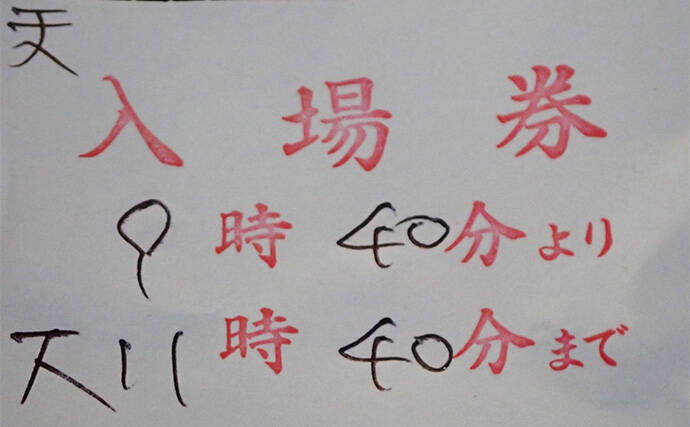 入場券
9時40分より
11時40分まで